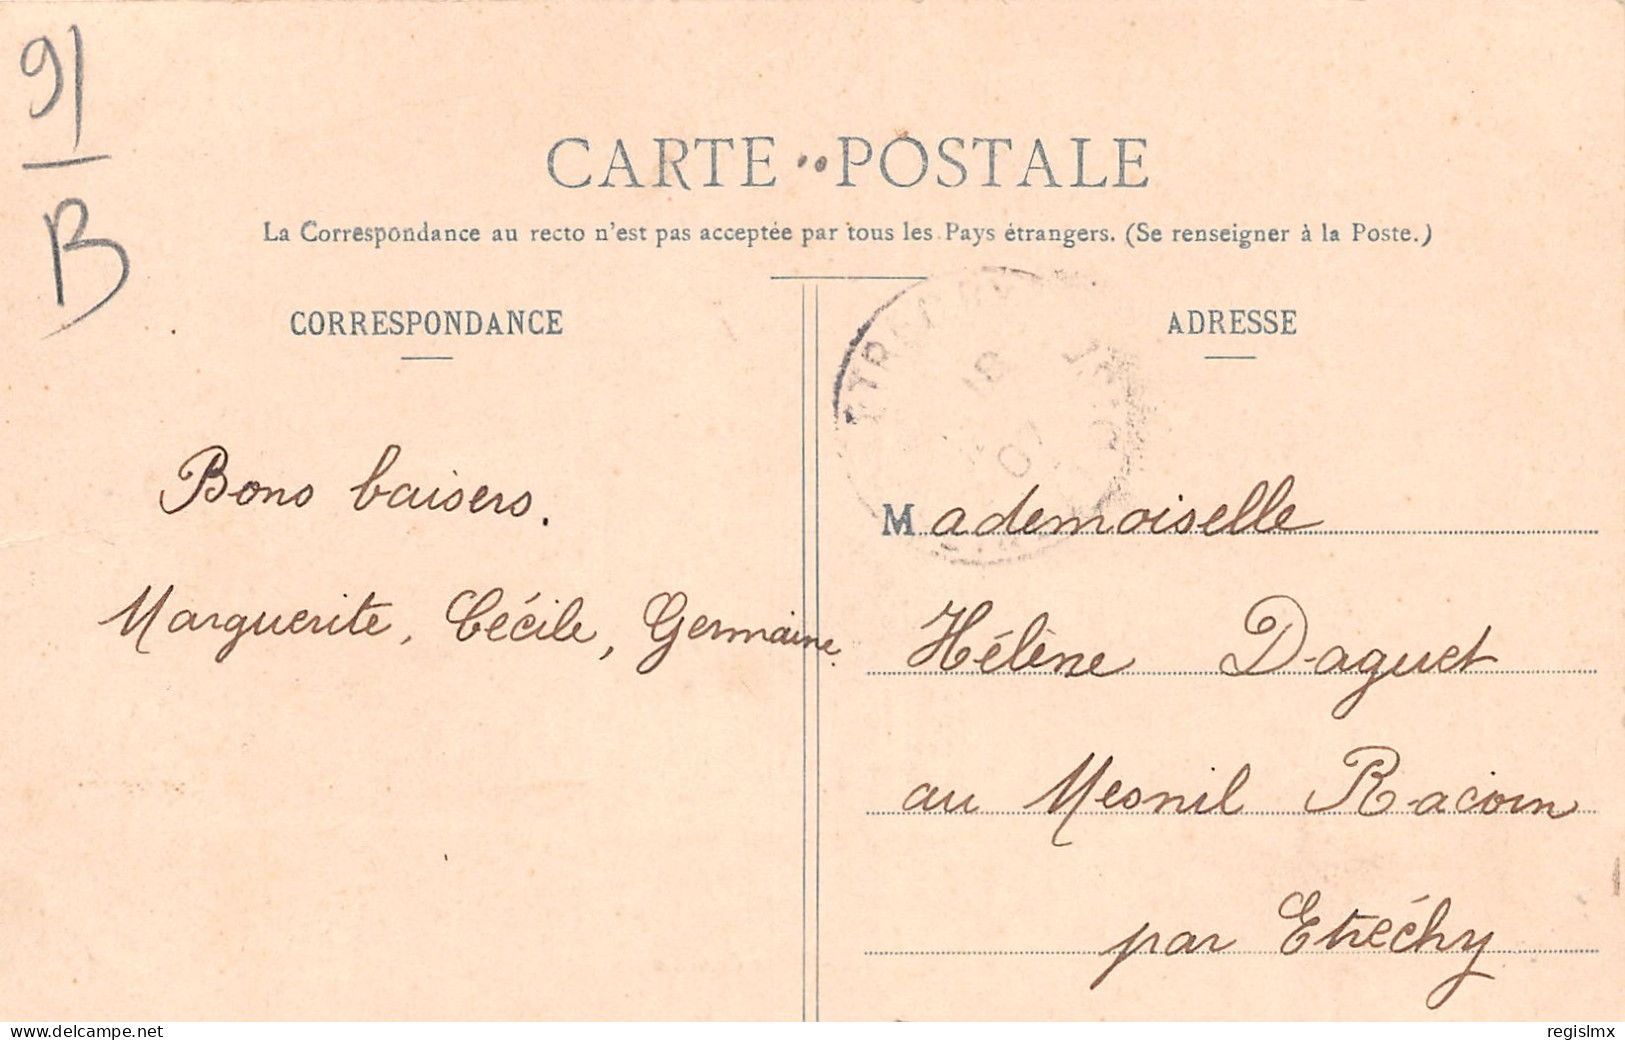 91
B
CARTE POSTALE
La Correspondance au recto n'est pas acceptée par tous les Pays étrangers. (Se renseigner à la Poste.)
CORRESPONDANCE
Bons baisers.
Marguerite, Cécile, Germaine.
ADRESSE
18
07
Mademoiselle
Hélène Daguet
au Mesnil Racoin
par Etréchy
www.delcampe.net
regislmx